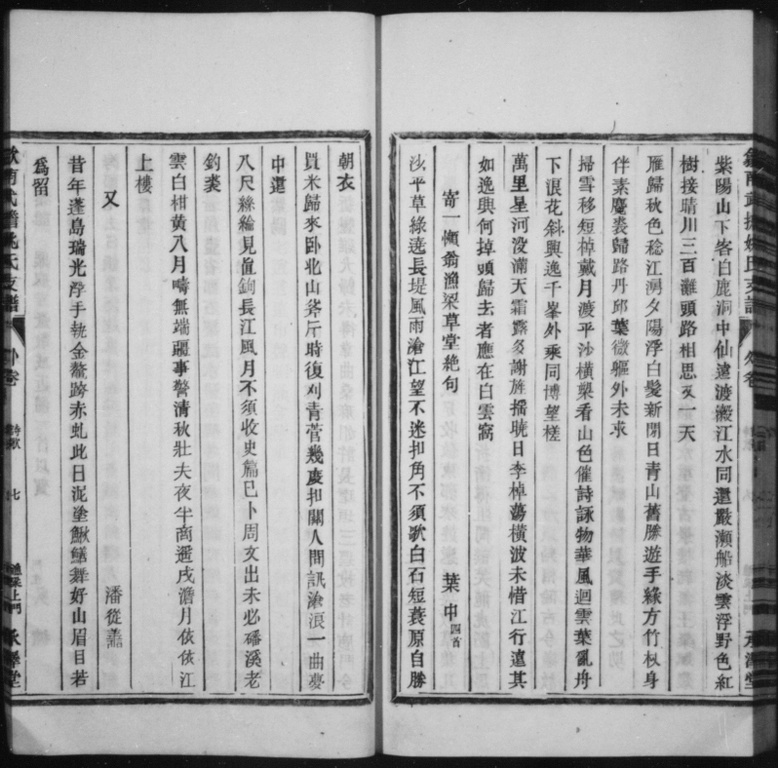 紫陽山下客白鹿洞中仙遠渡澱江水同還嚴瀨船淡雲浮野色紅
樹接晴川三百灘頭路相思又一天
雁歸秋色稔江澚夕陽浮白髮新閉日青山舊勝遊手綠方竹杖身
伴素麑裘歸路丹邱葉微軀外未求
掃雪移短棹戴月渡平沙橫槊看山色催詩詠物華風迴雲葉亂舟
下浪花斜興逸千峯外乘同博望槎
萬里星河淩滿天霜露多謝旌搖曉日李棹蕩橫波未惜江行遠其
如逸興何掉頭歸去者應在白雲窩
寄一懶翁漁梁草堂絶句 葉中四首
沙平草綠遶長堤風雨滄江望不迷扣角不須歌白石短蓑原自勝
朝衣
買米歸來卧北山斧斤時復刈青菅幾度扣關人間訊滄浪一曲夢
中還
八尺絲綸見直鉤長江風月不須收史篇已卜周文出未必磻溪老
釣裘
雲白柑黄八月疇無端疆事警清秋壯夫夜半商遷戍澹月依依江
上樓
又 潘從
昔年蓬島瑞光浮手執金鰲跨赤虬此日泥塗鰍鱔舞好山眉目若
爲留
外卷
七
承澤堂